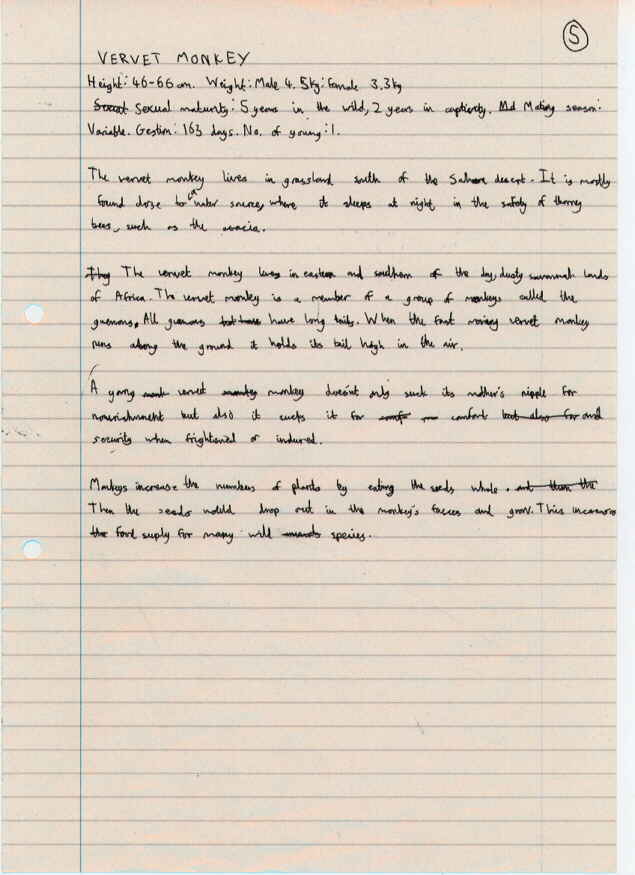 5
VERVET MONKEY
Height: 46-66 cm. Weight: Male 4.5kg: Female 3.3kg
Sexual maturity: 5 years in the wild, 2 years in captivity. Mating season:
Variable. Gestion: 163 days. No. of young: 1.
The vervet monkey lives in grassland south of the Sahara desert. It is mostly
found close to a water source, where it sleeps at night, in the safety of thorny
trees, such as the acacia.
The vervet monkey lives in eastern and southern of the dry, dusty savannah lands
of Africa. The vervet monkey is a member of a group of monkeys called the
guenons. All guenons have long tails. When the fast moving vervet monkey
runs along the ground it holds its tail high in the air.
A young vervet monkey doesn't only suck its mother's nipple for
nourishment but also it sucks it for comfort and
security when frightened or
Monkeys increase the numbers of plants by eating the seeds whole.
Then the seeds would drop out in the monkey's faeces and grow. This increases
food suply for many wild species.